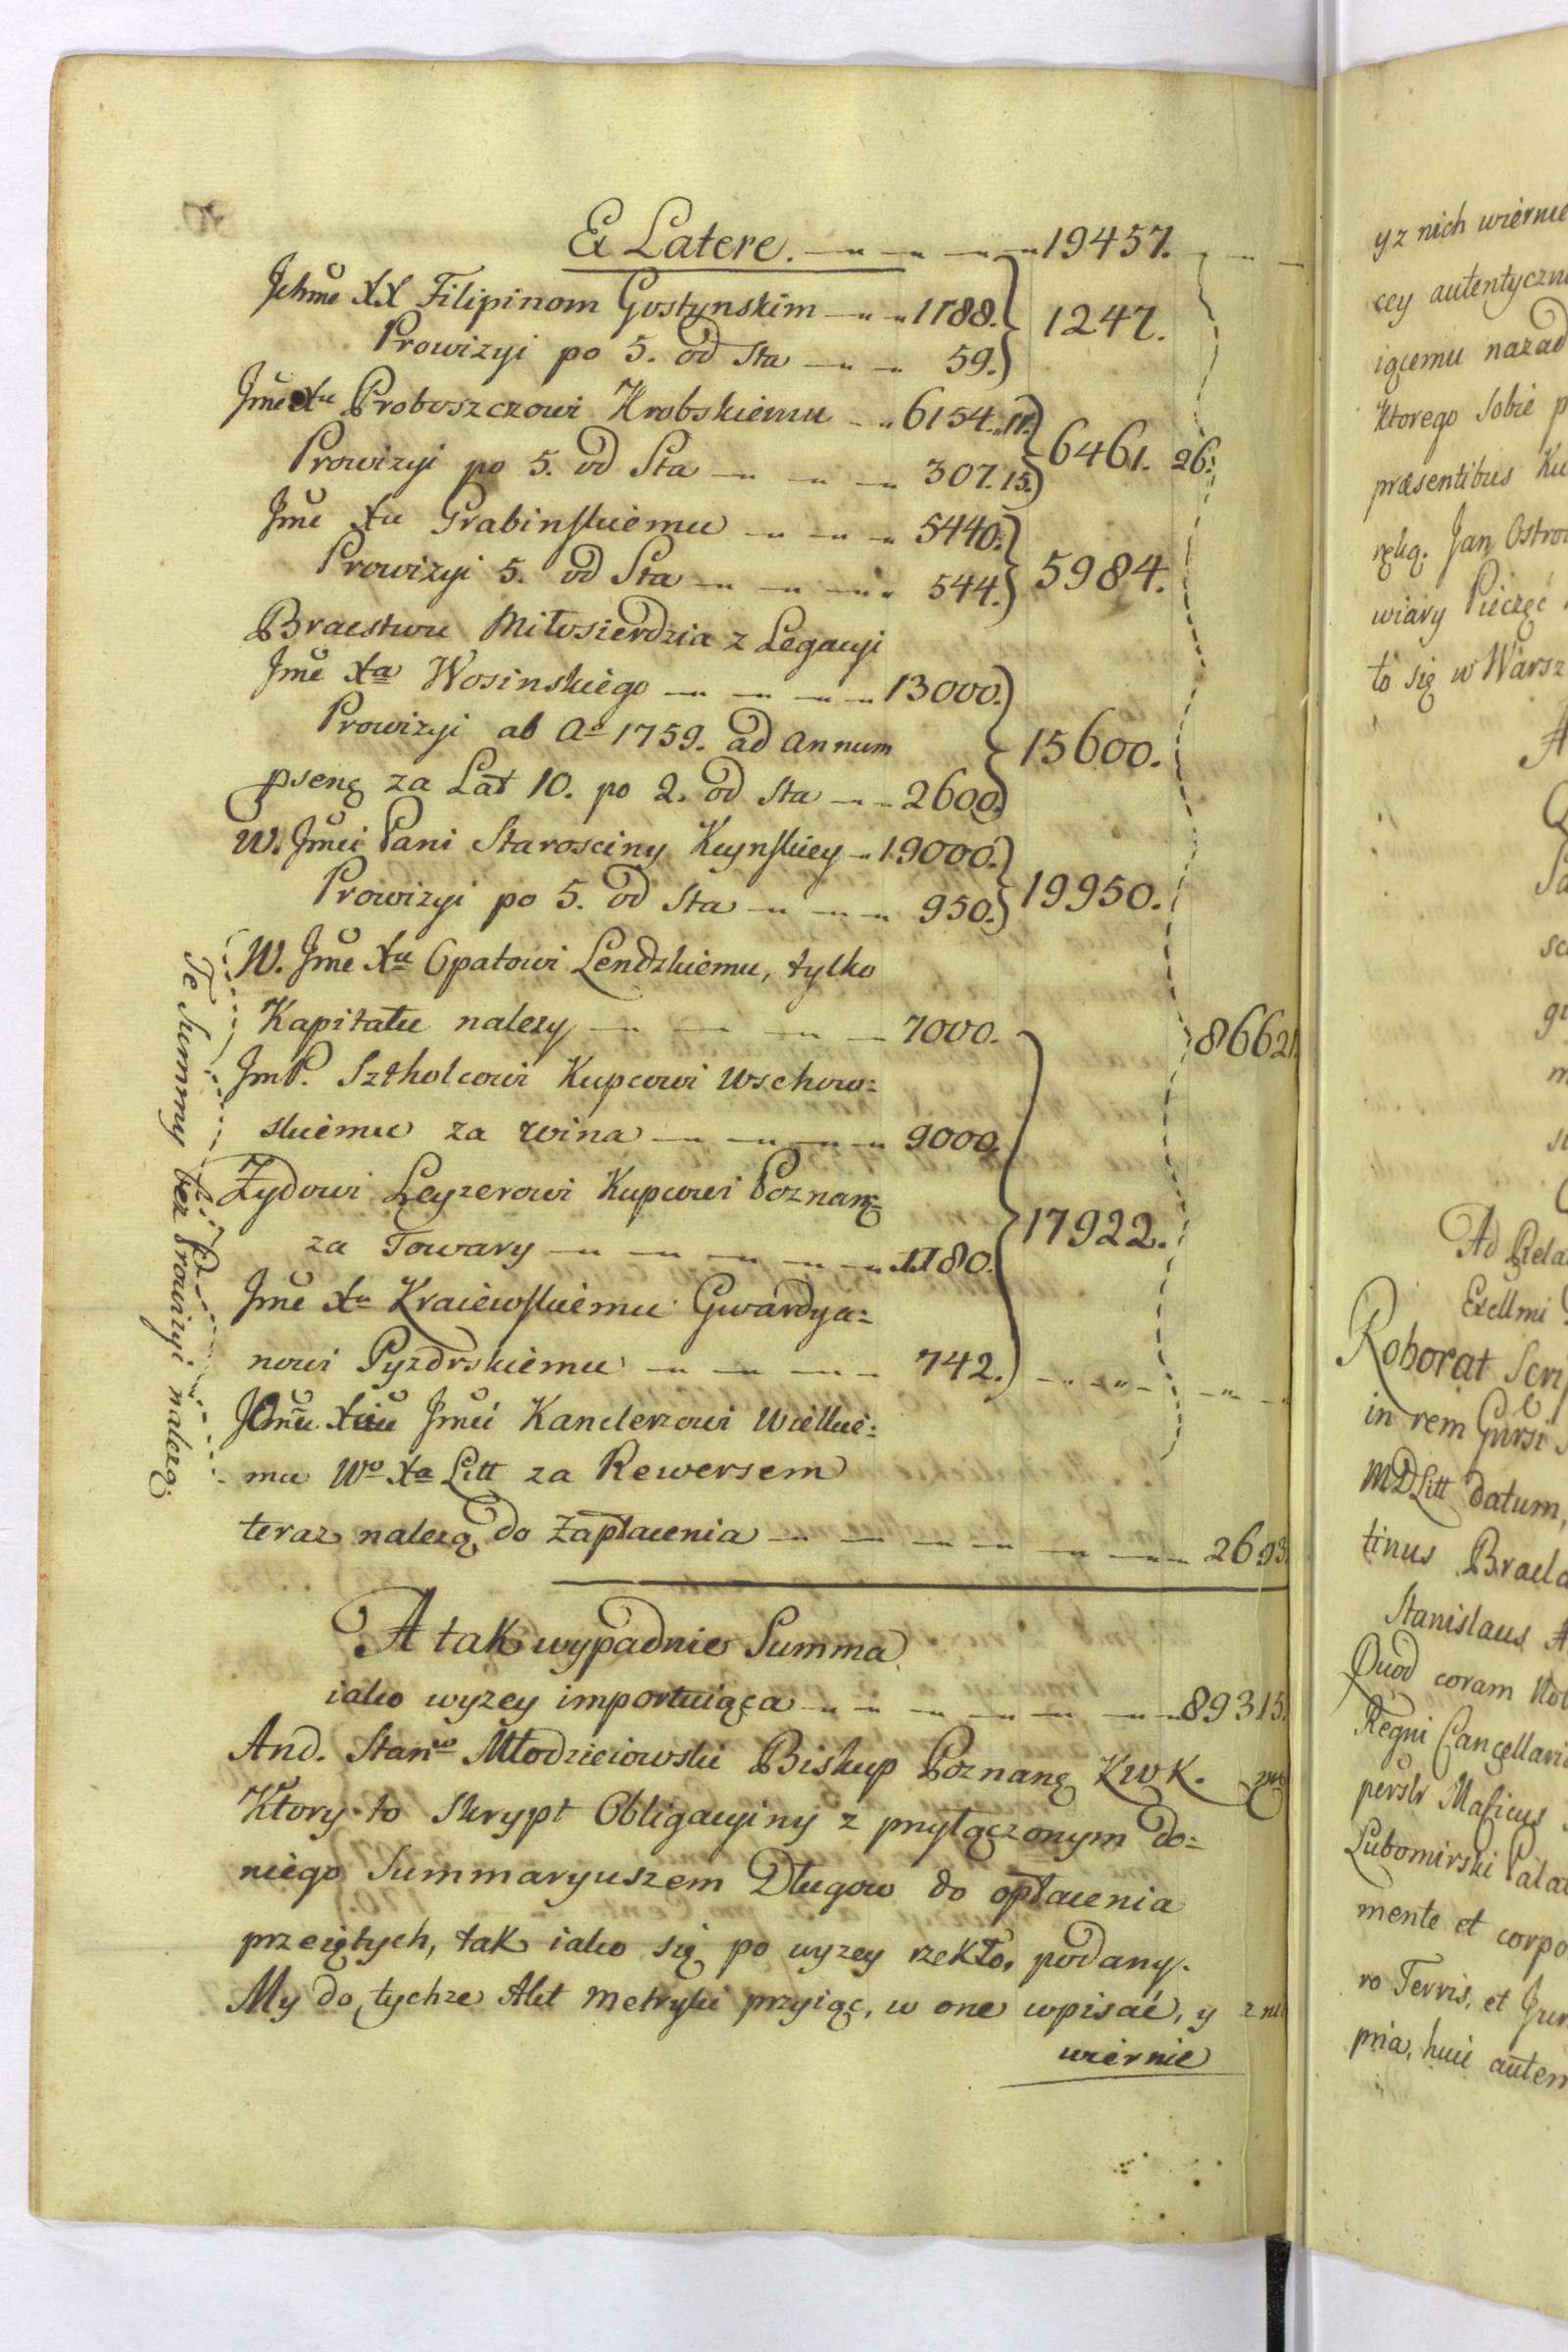 Ex Latere. 19457.
Jchmć XX Filipinom Gostynskim 1188. 1247.
Prowizyi po 5. od Sta 59.
Jmć Xu Proboszczowi Krobskiemu 6154. 11. 6461. 26.
Prowizyi po 5. od Sta 307. 15.
Jmć Xu Grabinskiemu 5440. 5984.
Prowizyi 5. od Sta 544.
Bractwu Miłosierdzia z Legacyi
Jmć Xa Wosinskiego 13000.
Prowizyi ab Ao 1759. ad annum 15600.
pseng za Lat 10. po 2. od Sta 2600.
W. Jmci Pani Starosciny Kcynskiey 19000.
Prowizyi po 5. od Sta 950. 19950.
W. Jmć Xu Opatowi Lendzkiemu, tylko
Kapitału nalezy 7000. 86621.
JmP. Sztholcowi Kupcowi Wschow:
skiemu za wina 9000.
Zydowi Leyzerowi Kupcowi Poznang
za Towary 1180. 17922.
Jmć Xu Kraiewskiemu Gwardya:
nowi Pyzdrskiemu 742.
JOmu Xciu Jmci Kanclerzowi Wielkie:
mu Wo Xa Litt za Rewersem
teraz nalezą do Zapłacenia 2693.
Te Summy bez Prowizyi nalezą.
A tak wypadnie Summa
iako wyzey importuiąca 89315.
And. Stanw Młodzieiowski Biskup Poznang KWK. mp
Ktory to Skrypt Obligacyiny z przyłączonym do:
niego Summaryuszem Długow do opłacenia
przeiętych, tak iako się po wyzey rzekło, podany.
My do tychze Akt Metryki przyiąc, w one wpisać, y z nic
wiernie
y z nich wiernie
cey autentyczn
iącemu nazad
Ktorego Sobie p
præsentibus Ku
ręką. Jan Ostro
wiary Pieczęć
to się w Warsz
Ad Rela
Excllmi
Roborat Scri
in rem Gursi
MDLitt datum,
tinus Bracla
Stanislaus A
Quod coram Not
Regni Cancellari
perslr Maficus
Lubomirski Palat
mente et corpo
ro Terris, et Jur
pria, huic autem